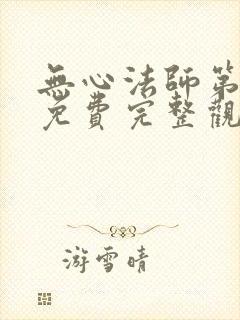 無心法師第
免費完整觀
游雪晴